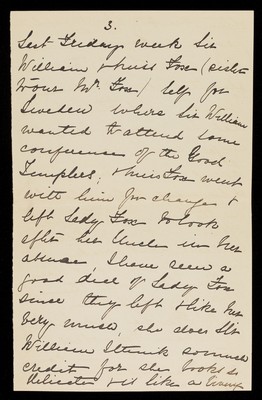 3.
Last Friday week Sir
William & Miss Fox (sister
to our Mr. Fox) left for
Sweden where Sir William
wanted to attend some
conference of the Good
Templers; & Miss Fox went
with him for change &
left Lady Fox to look
after her Uncle in her
absence I have seen a
good deal of Lady Fox
since they left & like her
very much, she does Sir
William I think so much
credit for she looks so
delicate & is like a